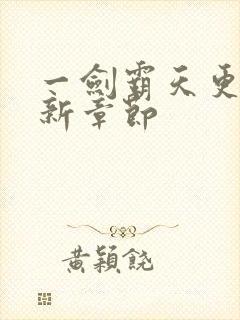 一劍霸天更
新章節
黃穎饒